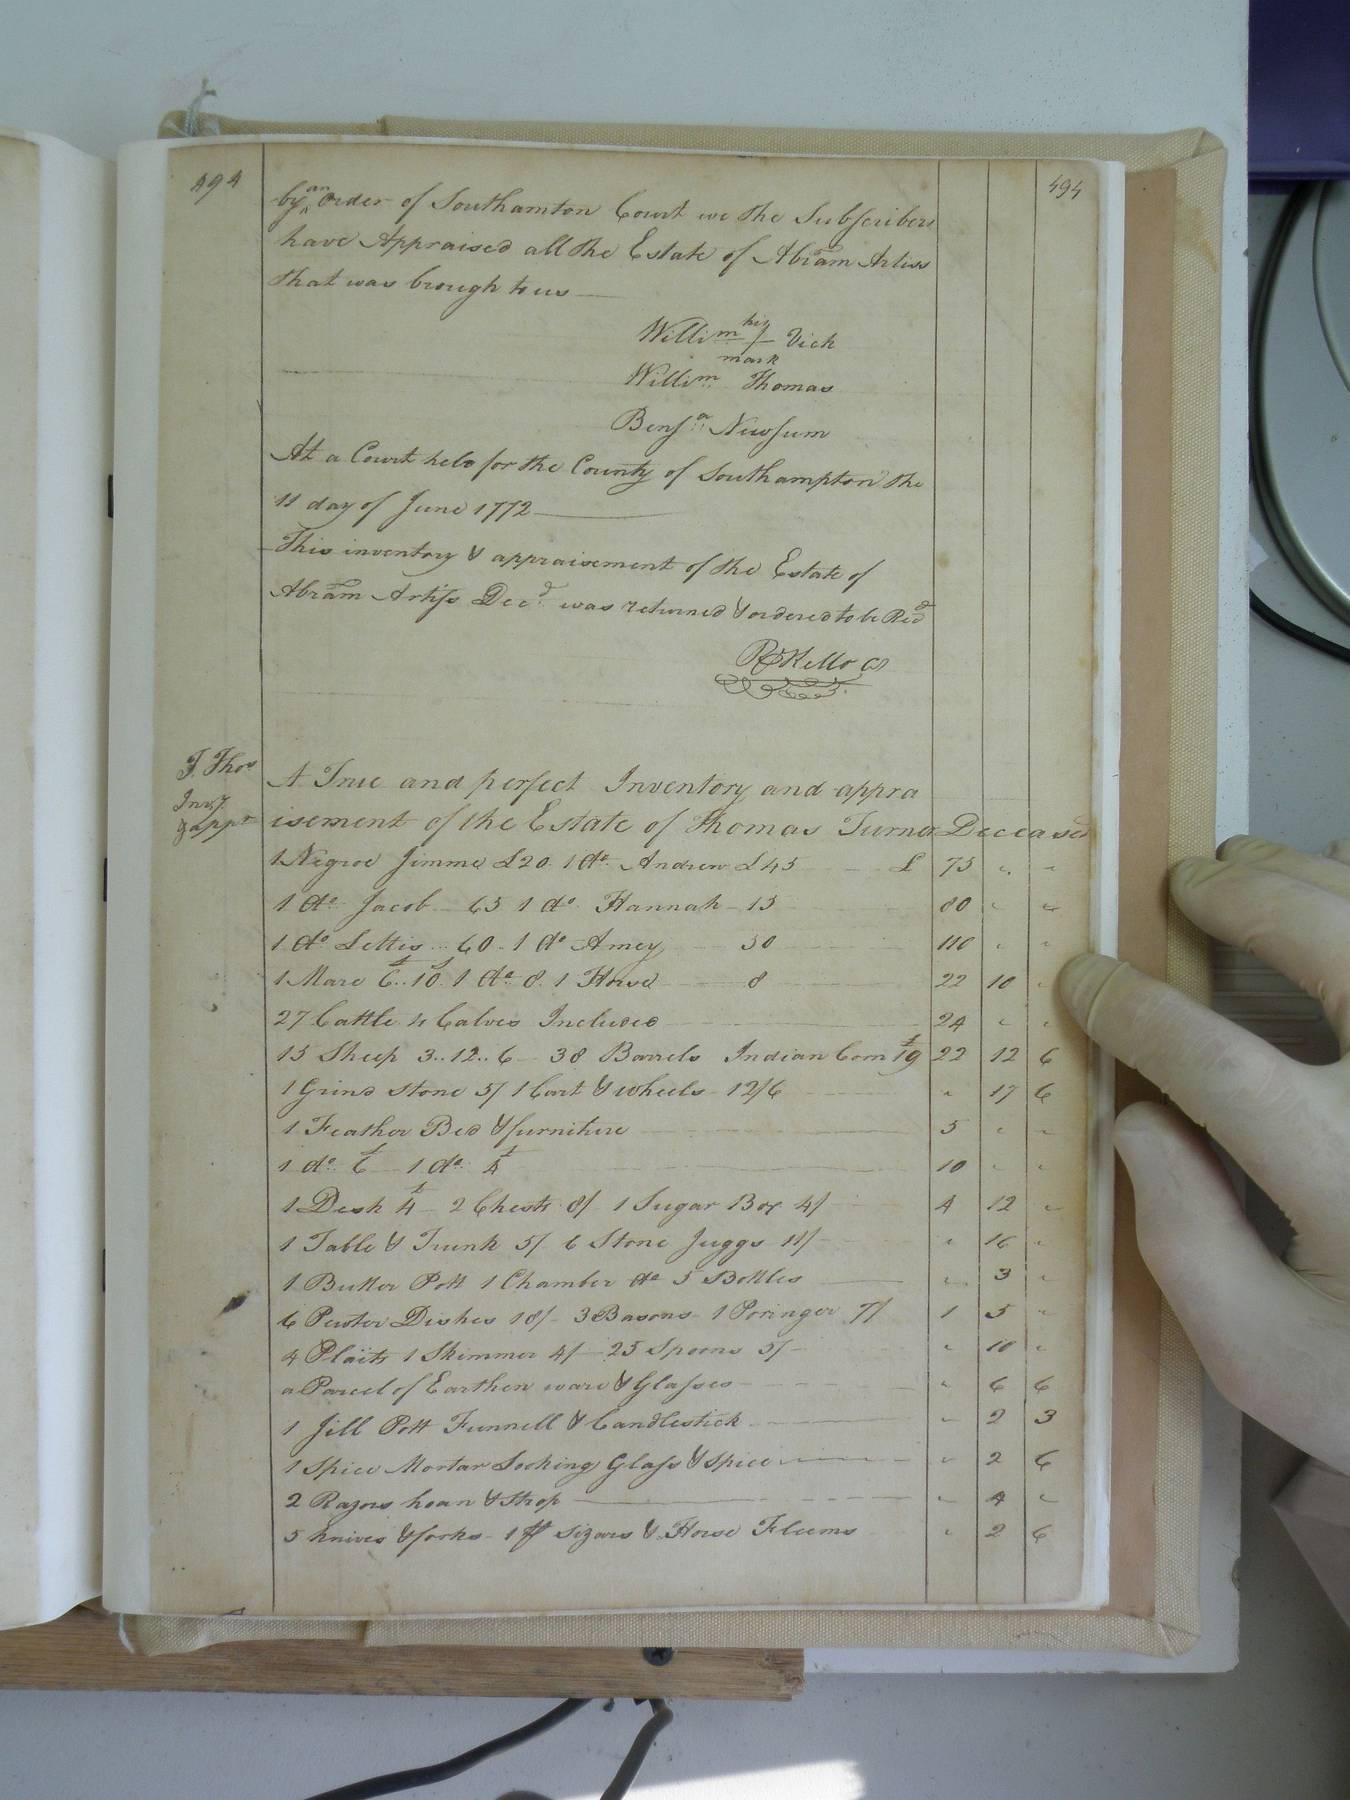 494
494
by an Order of Southamton Court we the Subscribers
have Appraised all the Estate of Abram Artiss
that was brough to us
Willim his Vick
mark
Willim Thomas
Benja Newsum
At a Court held for the County of Southampton the
11 day of June 1772
This inventory & appraisement of the Estate of
Abram Artiss Decd. was returned & ordered to be Recd
R Kello C
T. Thos
Invy
& appt
A True and perfect Inventory and appra
isement of the Estate of Thomas Turner Deceased
1 Negroe Jimme £20. 1 do. Andrew £45 £ 75 " "
1 do. Jacob 65 1 do. Hannah 15 80 " "
1 do Lettis 60. 1 do Amey 50 110 " "
1 Mare £6..10s 1 do. 8. 1 Horse 8 22 10 "
27 Cattle 4 Calves Included 24 " "
15 Sheep 3..12..6 38 Barrels Indian Corn £19 22 12 6
1 Grind stone 5/ 1 Cart & wheels 12/6 " 17 6
1 Feather Bed & furniture 5 " "
1 do. £6 1 do. £4 10 " "
1 Desk £4 2 Chests 8/ 1 Sugar Box 4/ 4 12 "
1 Table & Trunk 5/ 6 Stone Juggs 11/ " 16 "
1 Butter Pott 1 Chamber do 5 Bottles " 3 "
6 Pewter Dishes 18/ 3 Basons 1 Poringer 7/ 1 5 "
4 Plaits 1 Skimmer 4/ 25 Spoons 5/ " 10 "
a Parcel of Earthen ware & Glasses " 6 6
1 Jill Pott Funnell & Candlestick " 2 3
1 Spice Mortar Looking Glass & Spice " 2 6
2 Razors hoan & Strop " 4 "
5 knives & forks 1 pr Sizars & Horse Fleems " 2 6